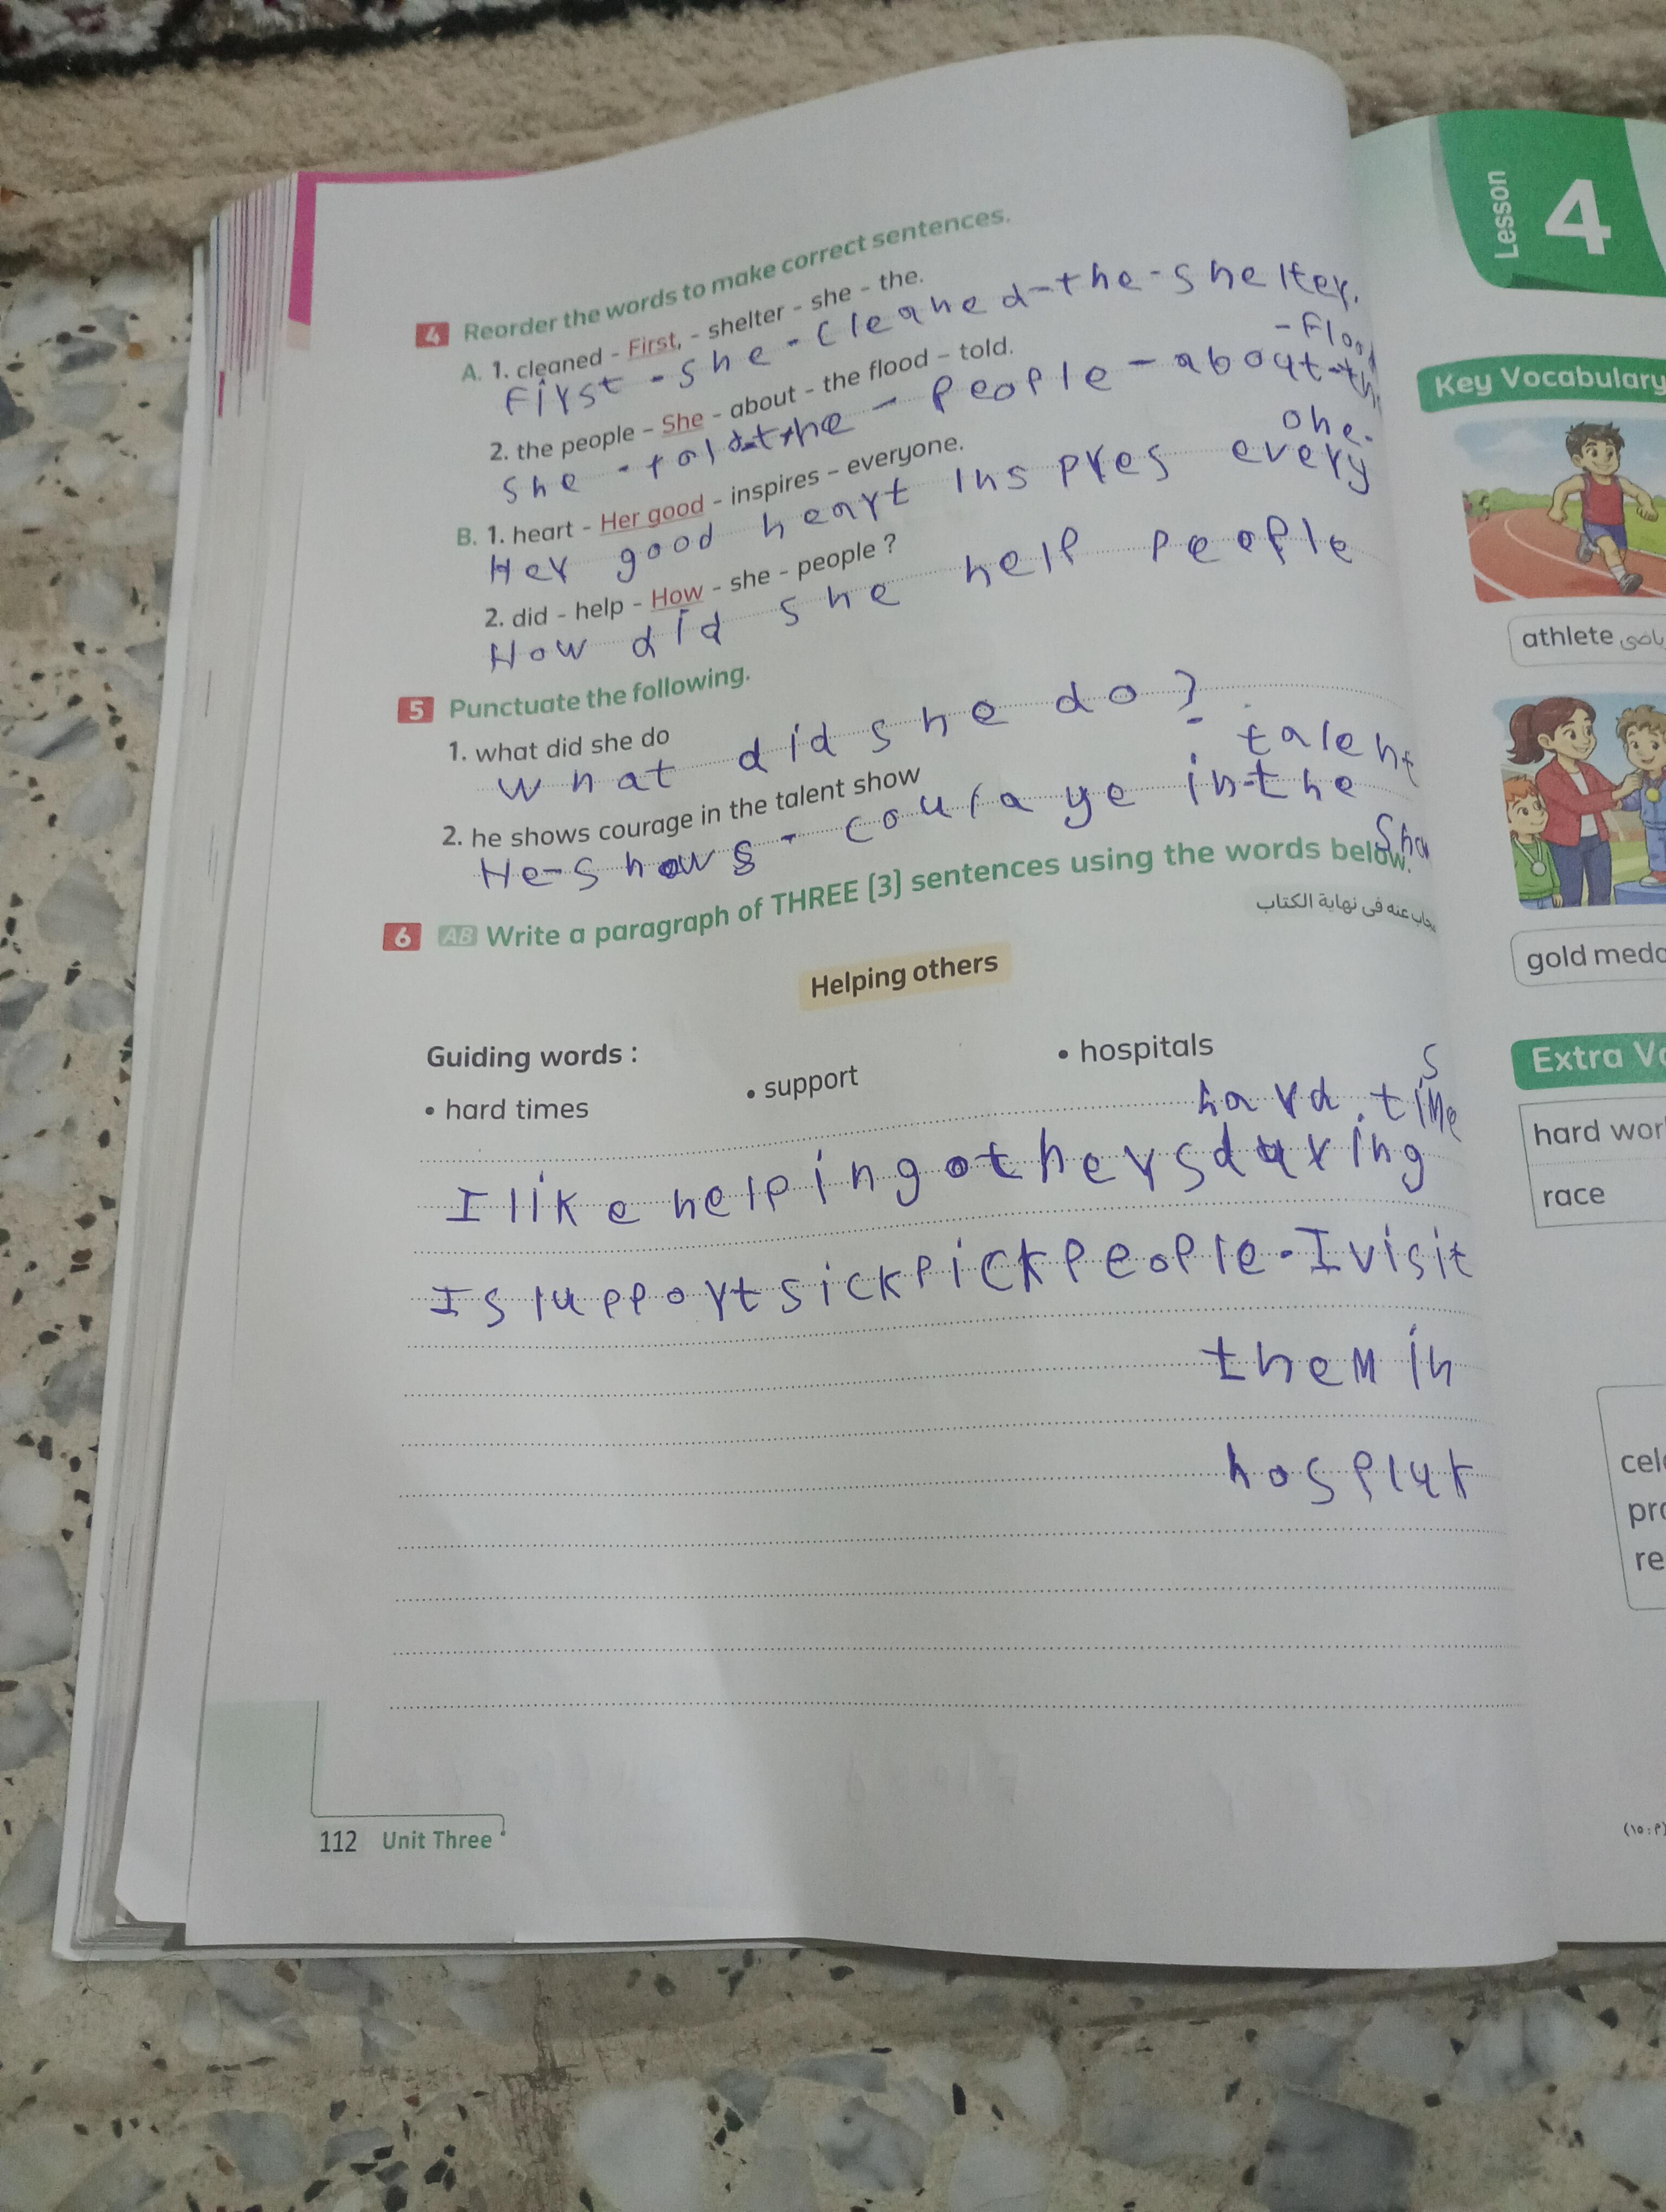 4 Reorder the words to make correct sentences.
A. 1. cleaned - First, - shelter - she - the.
First - she - cleaned-the-shelter.
2. the people - She - about - the flood - told.
- Flood
She - told-the - People - about-th
B. 1. heart - Her good - inspires - everyone.
one.
Her good heart inspres every
2. did - help - How - she - people ?
How did she help people
5 Punctuate the following.
1. what did she do
what did she do?
2. he shows courage in the talent show
talent
He-shows - courage in-the
Sho
6 AB Write a paragraph of THREE (3) sentences using the words below.
عنه فى نهاية الكتاب
Helping others
Guiding words :
• hard times
• support
• hospitals
hard. time
s
I like helping others during
I slupport sick pick people. I visit
them in
112 Unit Three
Lesson
4
Key Vocabulary
athlete
gold meda
Extra Vo
hard wor
race
cele
pro
re
(م: ١٥)